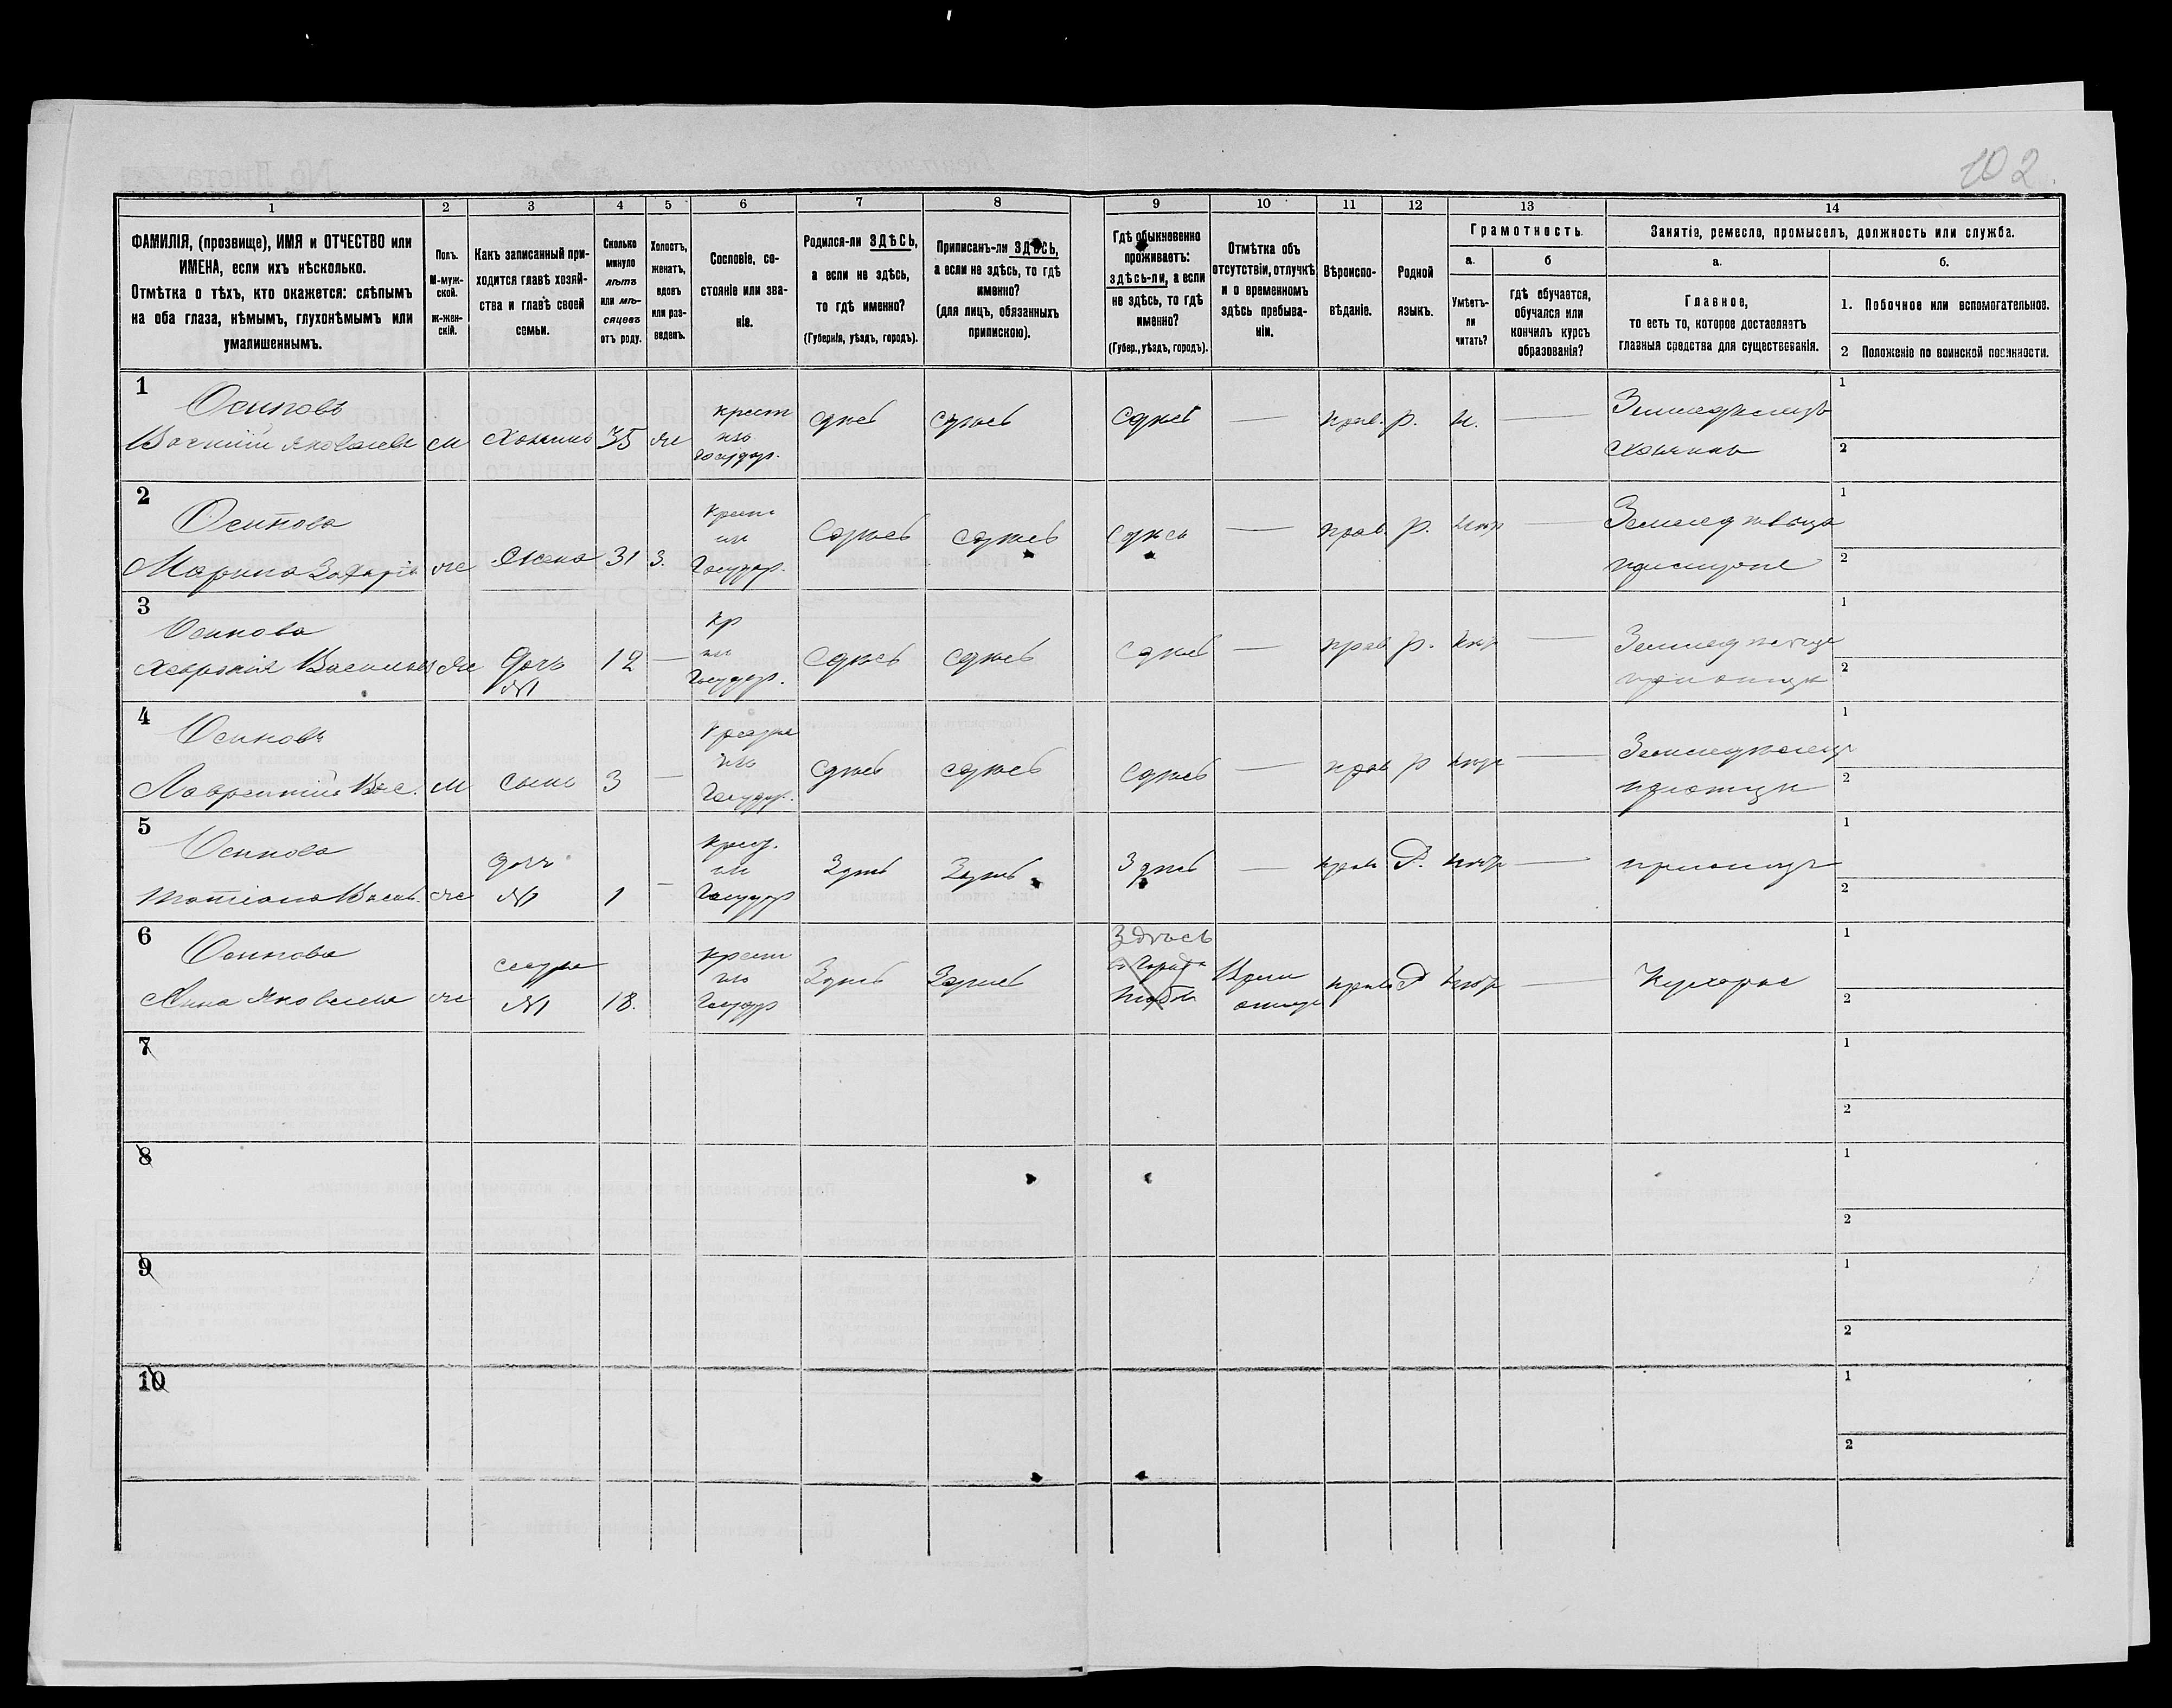 102.
1 2 3 4 5 6 7 8 9 10 11 12 13 14
ФАМИЛІЯ, (прозвище), ИМЯ и ОТЧЕСТВО или
ИМЕНА, если ихъ нѣсколько.
Отмѣтка о тѣхъ, кто окажется: слѣпымъ
на оба глаза, нѣмымъ, глухонѣмымъ или
умалишеннымъ.
Полъ.
М-муж-
ской.
ж-жен-
скій.
Какъ записанный при-
ходится главѣ хозяй-
ства и главѣ своей
семьи.
Сколько
минуло
лѣтъ
или мѣ-
сяцевъ
отъ роду.
Холостъ,
женатъ,
вдовъ
или раз-
веденъ.
Сословіе, со-
стояніе или зва-
ніе.
Родился-ли ЗДѢСЬ,
а если не здѣсь,
то гдѣ именно?
(Губернія, уѣздъ, городъ).
Приписанъ-ли ЗДѢСЬ,
а если не здѣсь, то гдѣ
именно?
(для лицъ, обязанныхъ
припискою).
Гдѣ обыкновенно
проживаетъ:
здѣсь-ли, а если
не здѣсь, то гдѣ
именно?
(Губер., уѣздъ, городъ).
Отмѣтка объ
отсутствіи, отлучкѣ
и о временномъ
здѣсь пребыва-
ніи.
Вѣроиспо-
вѣданіе.
Родной
языкъ.
Грамотность.
а.
Умѣетъ-
ли
читать?
б
гдѣ обучается,
обучался или
кончилъ курсъ
образованія?
Занятіе, ремесло, промыселъ, должность или служба.
а.
Главное,
то есть то, которое доставляетъ
главныя средства для существованія.
б.
1. Побочное или вспомогательное.
2 Положеніе по воинской повинности.
1
Осиповъ
Василій Яковлевъ м Хозяинъ 35 ж
крест
изъ
Государ.
сдѣсь сдѣсь сдѣсь — прав. р. н. —
Земледѣлецъ
хозяинъ
1
2
2
Осипова
Марина Захарія ж Жена 31 з.
крест
из
Государ.
Сдѣсь сдѣсь сдѣсь — прав р. негр —
Земледѣлица
1
2
3
Осипова
Хеврония Василиев ж дочь
№1
12 —
кр
из
Государ.
Сдѣсь сдѣсь сдѣсь — прав р. негр —
1
2
4
Осиповъ
Лаврентий Вас. м сынъ 3 —
изъ
Государ.
сдѣсь сдѣсь сдѣсь — прав р негр —
Земледѣлец
1
2
5
Осипова
Татіана Васил. ж
дочь
№1
1 —
крест.
из
Государ
Здѣсь Здѣсь Здѣсь — прав Р. негр —
1
2
6
Осипова
Анна Яковлева ж
сестра
№1
18.
крест
из
Государ
Здѣсь Здѣсь
Здѣсь
прав Р негр —
Кухарка
1
2
7
1
2
8
1
2
9
1
2
10
1
2